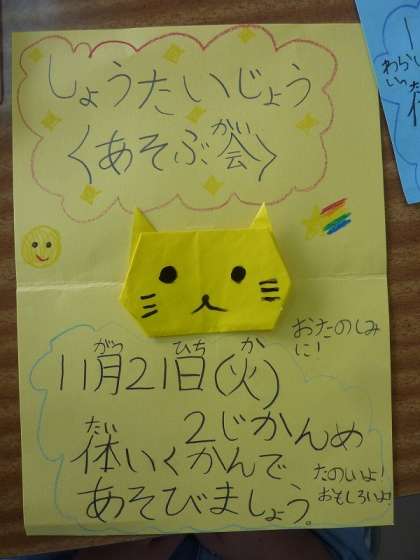 しょうたいじょう
〈あそぶ会〉
がい
おたのしみ
に!
がつ ひち か
11月21日(火)
2じかんめ
たい
体いくかんで
あそびましょう。
たのしいよ!
おもしろいよ!